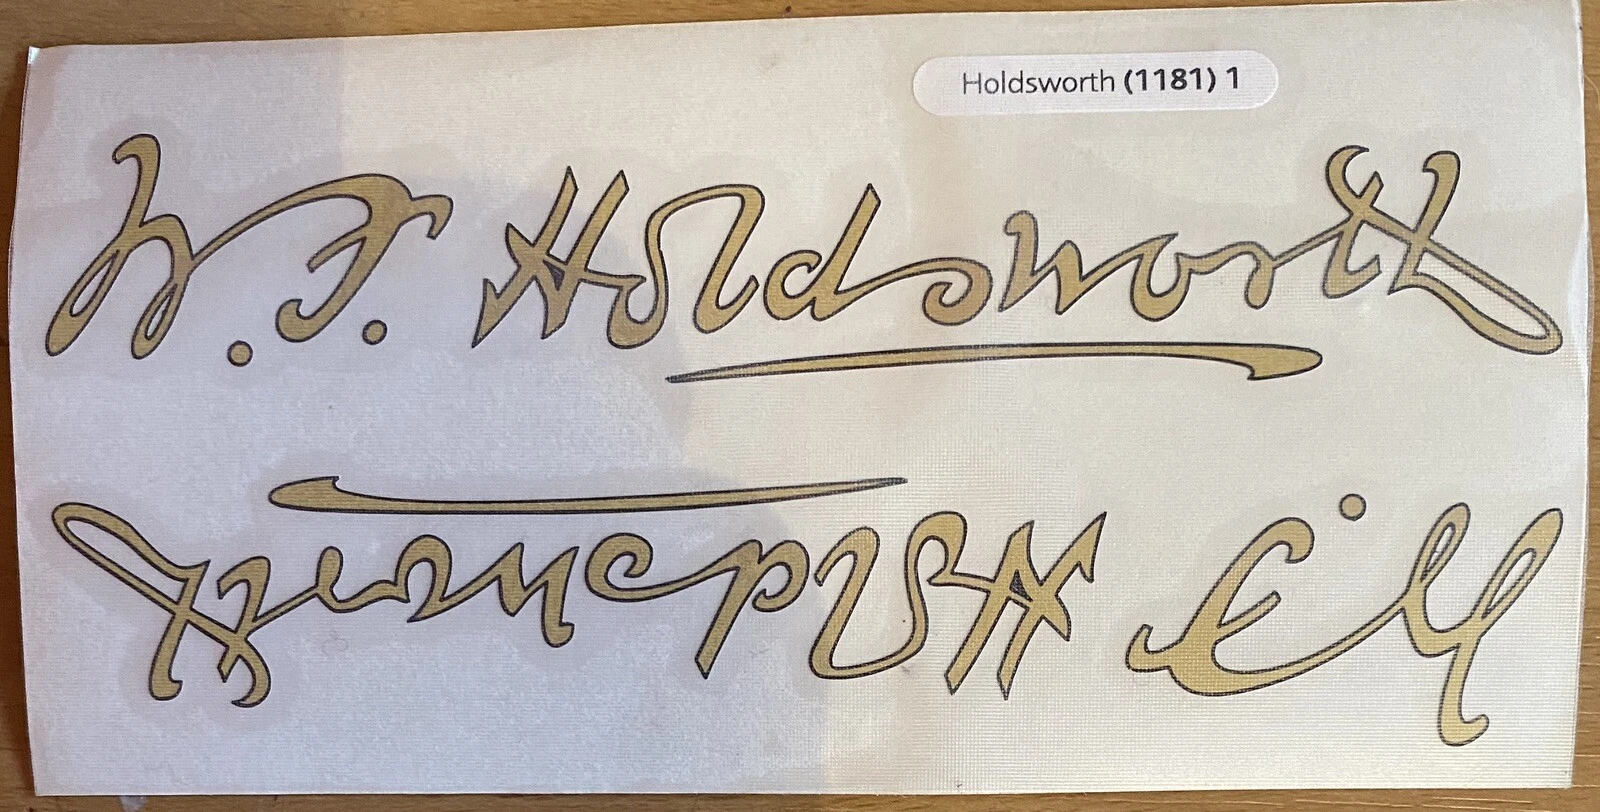 Holdsworth (1181) 1
W.F. Holdsworth
W.F. Holdsworth